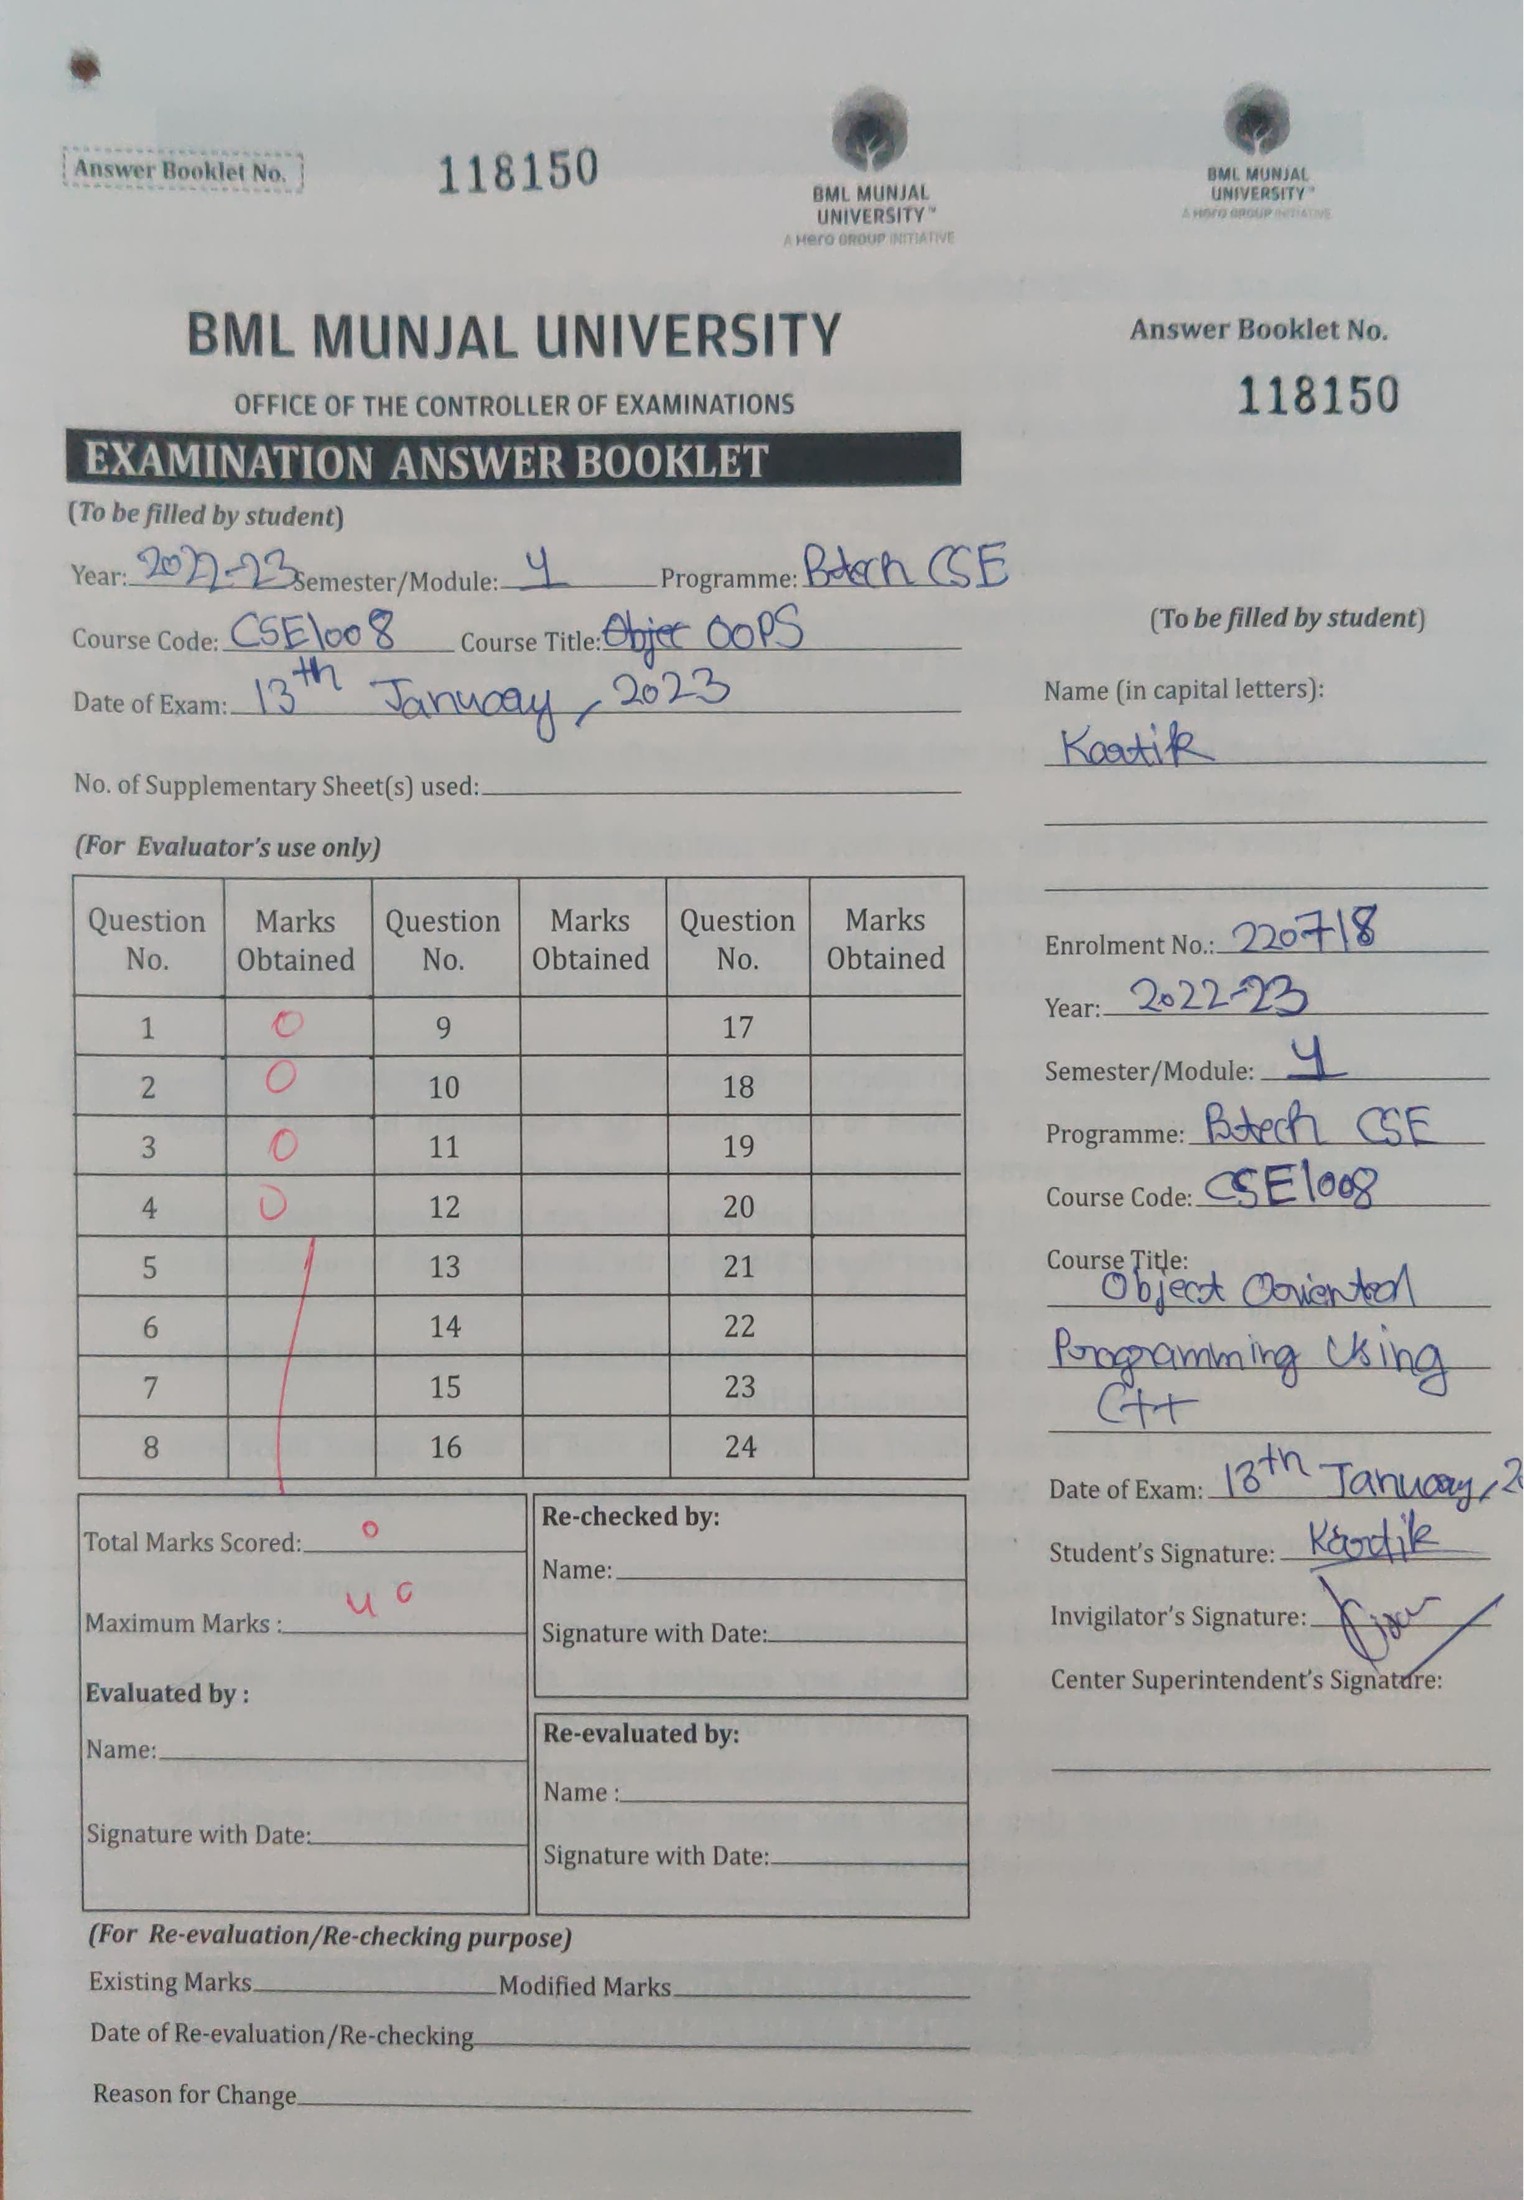 Answer Booklet No. 118150
BML MUNJAL
UNIVERSITY™
A Hero GROUP INITIATIVE
BML MUNJAL
UNIVERSITY™
A Hero GROUP INITIATIVE
BML MUNJAL UNIVERSITY
OFFICE OF THE CONTROLLER OF EXAMINATIONS
EXAMINATION ANSWER BOOKLET
(To be filled by student)
Year: 2022-23 Semester/Module: 1 Programme: Btech CSE
Course Code: CSE1008 Course Title: Objec OOPS
Date of Exam: 13th January, 2023
No. of Supplementary Sheet(s) used:
(For Evaluator's use only)
Question No. Marks Obtained Question No. Marks Obtained Question No. Marks Obtained
1 0 9 17
2 0 10 18
3 0 11 19
4 0 12 20
5 13 21
6 14 22
7 15 23
8 16 24
Total Marks Scored: 0
Maximum Marks : 40
Evaluated by :
Name:
Signature with Date:
Re-checked by:
Name:
Signature with Date:
Re-evaluated by:
Name :
Signature with Date:
(For Re-evaluation/Re-checking purpose)
Existing Marks Modified Marks
Date of Re-evaluation/Re-checking
Reason for Change
Answer Booklet No.
118150
(To be filled by student)
Name (in capital letters):
Kartik
Enrolment No.: 220718
Year: 2022-23
Semester/Module: 1
Programme: Btech CSE
Course Code: CSE1008
Course Title:
Object Oriented
Programming Using
C++
Date of Exam: 13th January, 2
Student's Signature: Kartik
Invigilator's Signature:
Center Superintendent's Signature: